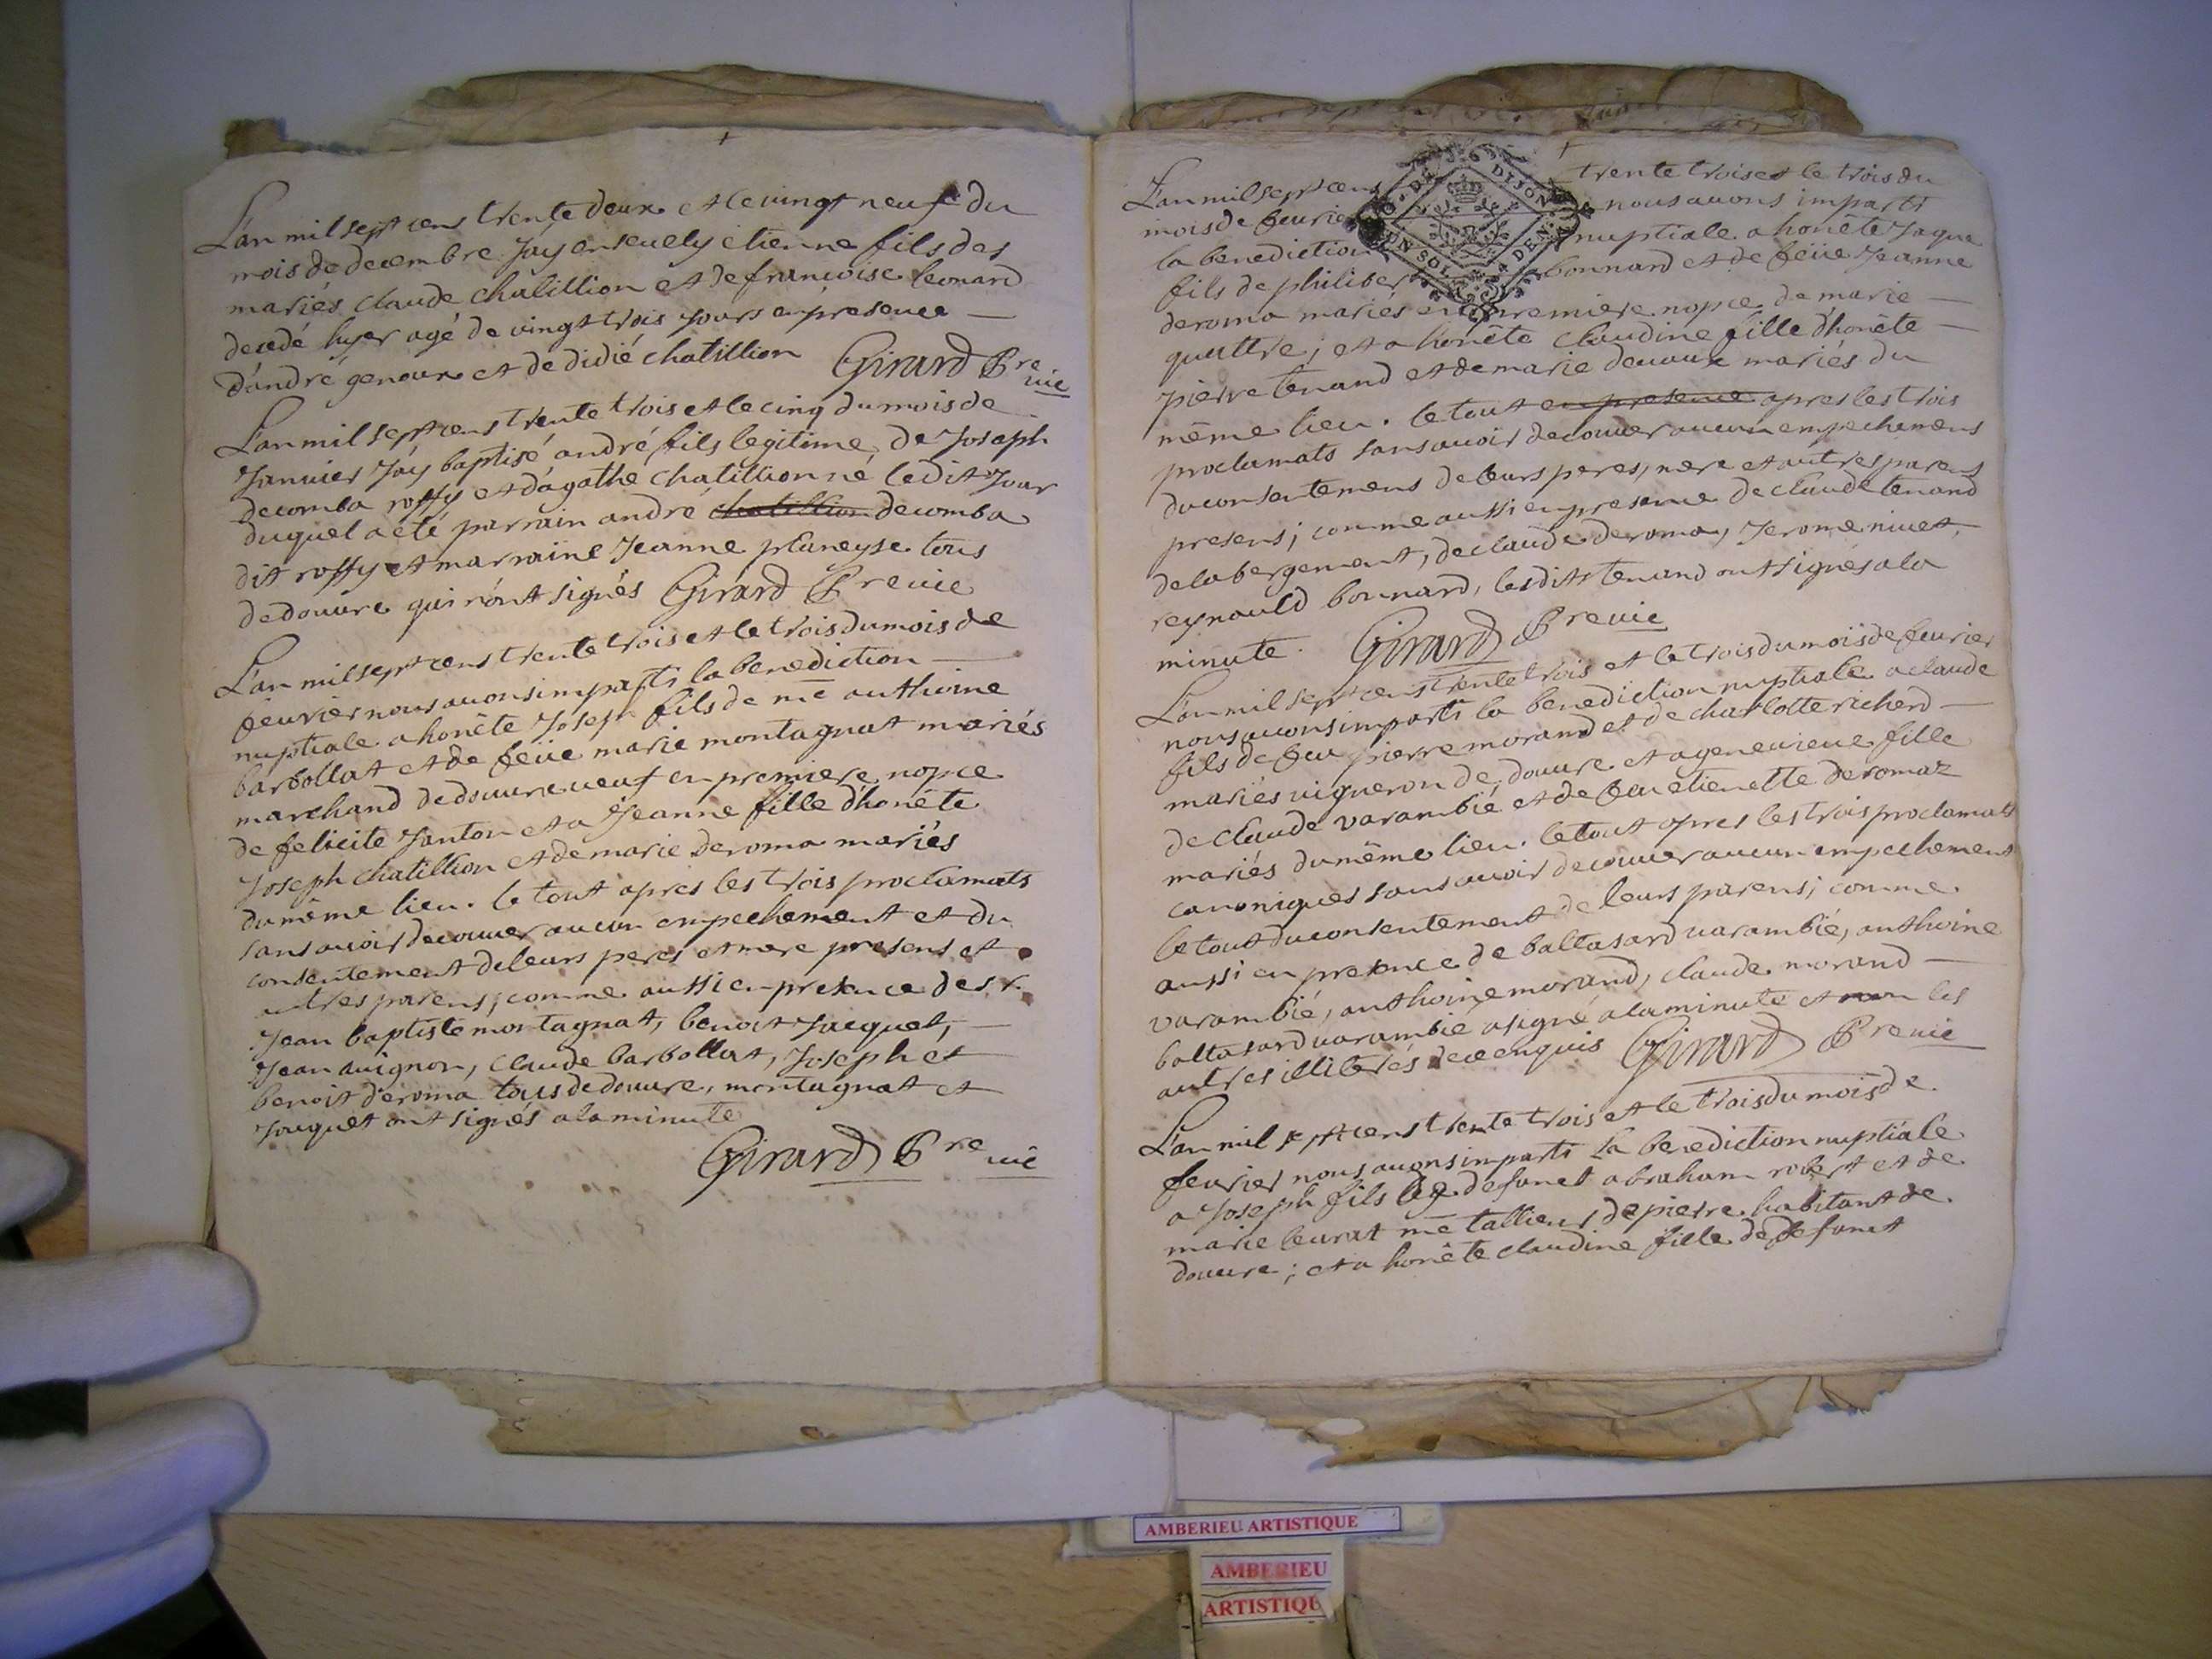 L'an mil sept cens trente deux et le vingt neuf du
mois de decembre J'ay ensevely etienne fils des
mariés claude chatillion et de françoise leonard
decedé hyer agé de vingt trois jours en presence
d'andré genoux et de didié chatillion Girard Bre vic
L'an mil sept cens trente trois et le cinq du mois de
Janvier J'ay baptisé andré fils legitime de Joseph
decomba roffy et d'agathe chatillion né ledit Jour
duquel a été parrain andré chatillion decomba
dit roffy et marraine Jeanne planeyse tous
de douvre qui n'ont signés Girard Bre vic
L'an mil sept cens trente trois et le trois du mois de
fevrier nous avons imparti la benediction
nuptiale a honête Joseph fils de me anthoine
barbollat et de feüe marie montagnat mariés
marchand de douvre veuf en premiere nopce
de felicite Janton et a Jeanne fille d'honête
Joseph chatillion et de marie deroma mariés
du même lieu. le tout apres les trois proclamats
sans avoir decouver aucun empechement et du
consentement de leurs peres et mere presens et
autres parens; comme aussi en presence des r.
Jean baptiste montagnat, benoit Jacquet,
Jean avignon, claude barbollat, Joseph et
benoit deroma tous de douvre, montagnat et
Jaquet ont signés a la minute
Girard Bre vic
L'an mil sept cens trente trois et le trois du
mois de fevrier nous avons imparti
la benediction nuptiale a honête Jaque
fils de philiber bonnard et de feüe Jeanne
deroma mariés en premiere nopce de marie
quattre; et a honête claudine fille d'honête
pierre tenand et de marie devaux mariés du
même lieu. le tout en presence apres les trois
proclamats sans avoir decouver aucun empechemens
du consentemens de leurs peres, mere et autres parens
presens; comme aussi en presence de claude tenand
de labergement, de claude deroma, Jerome nivet,
reynauld bonnard, lesdits tenand ont signés a la
minute. Girard Bre vic
L'an mil sept cens trente trois et le trois du mois de fevrier
nous avons imparti la benediction nuptiale a claude
fils de feu pierre morand et de charlotte richerd
mariés vigneron de douvre et a genevieve fille
de claude varambié et de feu etienette deromaz
mariés du même lieu. le tout apres les trois proclamats
canoniques sans avoir decouver aucun empechement
le tout du consentement de leurs parens; comme
aussi en presence de baltasard varambié, anthoine
varambié, anthoine morand, claude morand
baltasard varambié a signé a la minute et non les
autres illiterés de ce enquis Girard Bre vic
L'an mil sept cens trente trois et le trois du mois de
fevrier nous avons imparti la benediction nuptiale
a Joseph fils leg. de defunct abraham robert et de
marie leurat me tallieur de pierre habitant de
douvre; et a honête claudine fille de defunct
DE DIJON
UN SOL 4 DEN
AMBERIEU ARTISTIQUE
AMBERIEU
ARTISTIQU